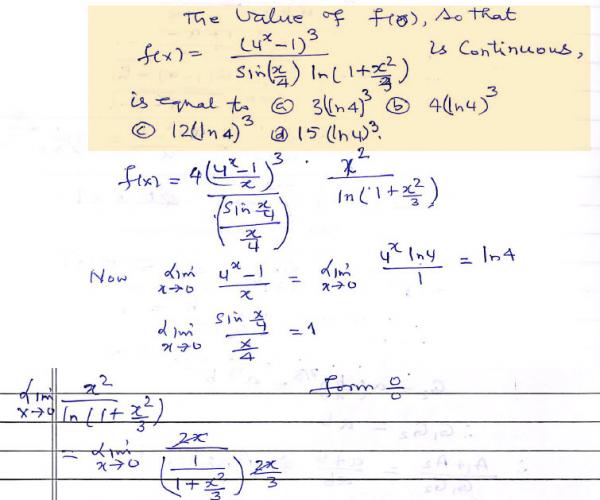 The value of f(0), so that
f(x) = (4^x - 1)^3 / (sin(x/4) ln(1 + x^2/3)) is continuous,
is equal to ⓐ 3(ln4)^3 ⓑ 4(ln4)^3
ⓒ 12(ln4)^3 ⓓ 15(ln4)^3.
f(x) = 4((4^x - 1)/x)^3 / ((sin x/4)/(x/4)) · x^2 / ln(1 + x^2/3)
Now Lim x→0 (4^x - 1)/x = Lim x→0 (4^x ln4)/1 = ln4
Lim x→0 (sin x/4)/(x/4) = 1
Lim x→0 x^2 / ln(1 + x^2/3) form 0/0
= Lim x→0 2x / ((1/(1 + x^2/3)) 2x/3)